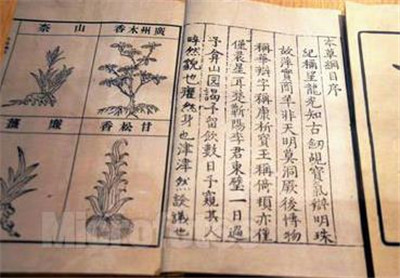 本草綱目序
紀稱望龍光知古劒覘寶氣辯明珠
故萍實商羊非天明莫洞厥後博物
稱華辯字稱康析寶玉稱倚頓亦僅
僅晨星耳楚蘄陽李君東璧一日過
予弇山園謁予留飲數日予窺其人
睟然貌也癯然身也津津然談議也
廣州木香
山柰
甘松香
廉薑